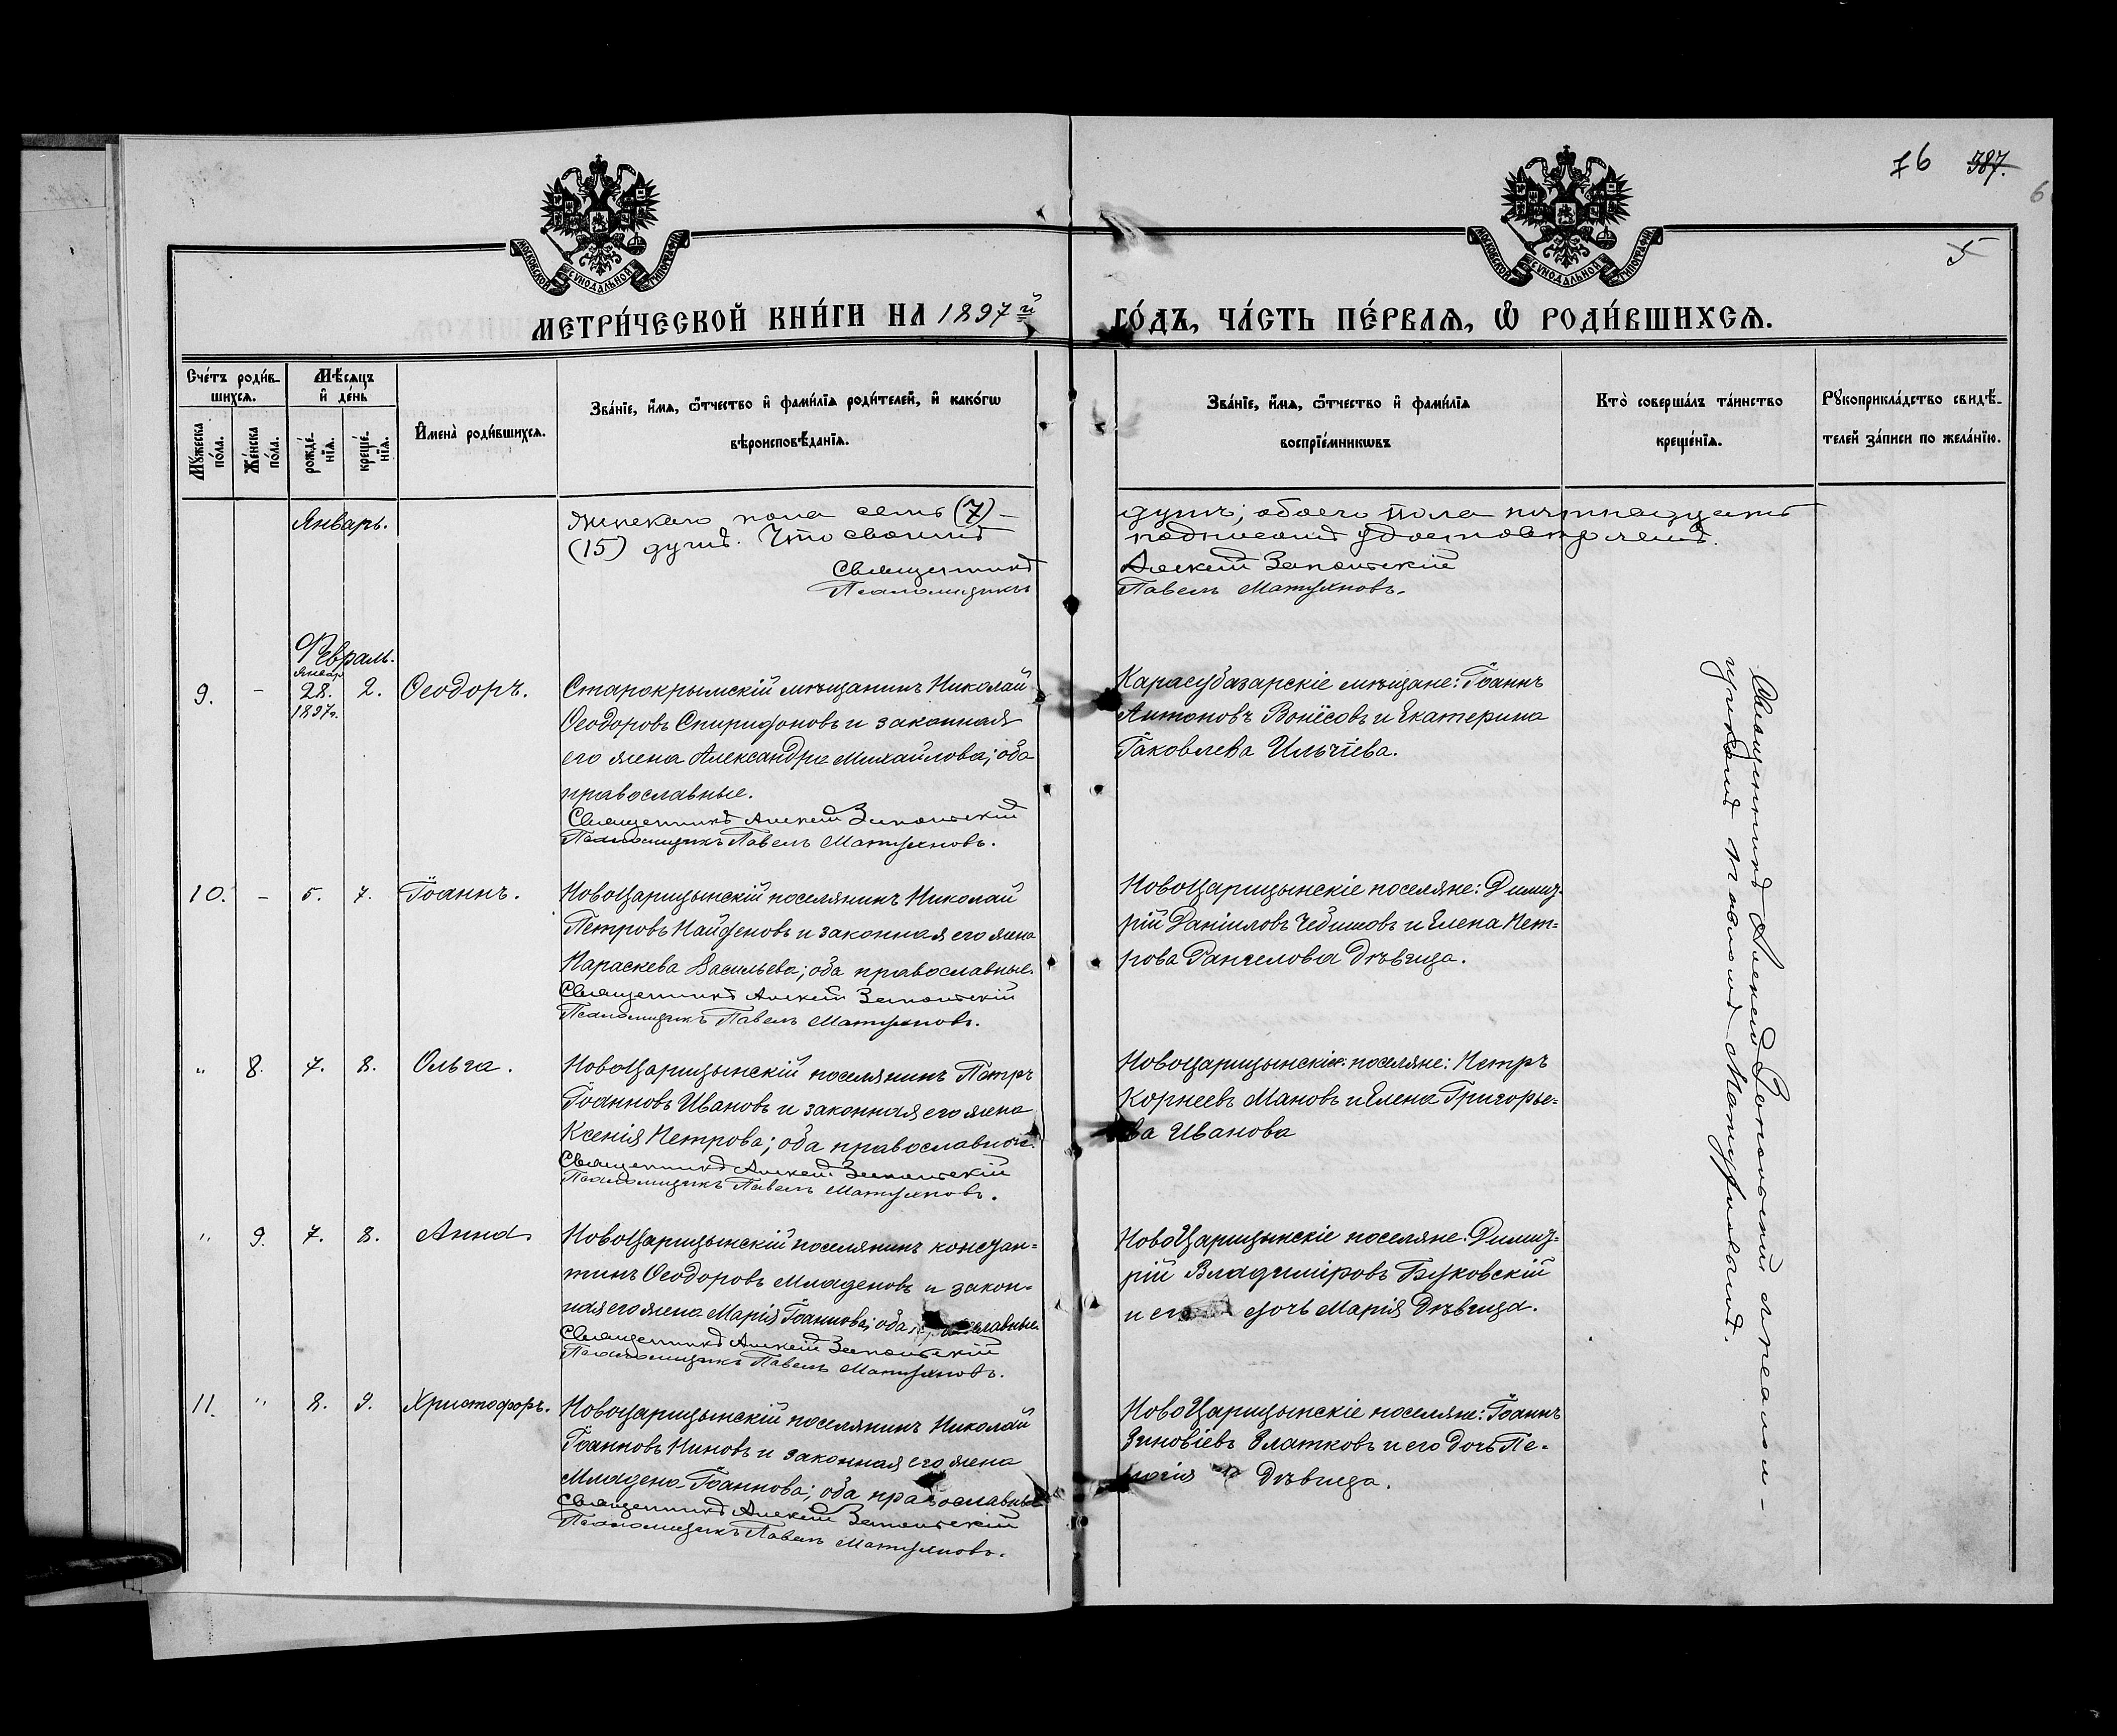 76 387.
6
5
МОСКОВСКОЙ СѴНОДАЛЬНОЙ ТИПОГРАФІИ
МОСКОВСКОЙ СѴНОДАЛЬНОЙ ТИПОГРАФІИ
МЕТРИ́ЧЕСКОЙ КНИ́ГИ НА 1897й ГО́ДЪ, ЧА́СТЬ ПЕ́РВАѦ, Ѽ РОДИ́ВШИХСѦ.
Сче́тъ роди́в-
шихсѧ.
Мѣ́сѧцъ
и҆ де́нь
Мꙋ́жеска
по́ла.
Же́нска
по́ла.
рожде́-
нїѧ.
креще́-
нїѧ.
И҆мена̀ роди́вшихсѧ.
Зва́нїе, и҆́мѧ, ѻ҆́тчество и҆ фами́лїѧ роди́телей, и҆ како́гѡ
вѣроисповѣ́данїѧ.
Зва́нїе, и҆́мѧ, ѻ҆́тчество и҆ фами́лїѧ
воспрїе́мникѡвъ
Кто̀ соверша́лъ та́инство
креще́нїѧ.
Рꙋкоприкла́дство свидѣ́-
телей за́писи по жела́нїю.
Январь.
женскаго пола семь (7) – душъ; обоего пола пятнадцать
(15) душъ. Что своимъ подписомъ удостовѣряемъ.
Священникъ Алексій Запольскій
Псаломщикъ Павелъ Матуяновъ.
Февраль.
9. – январ 28. 1897г. 2. Ѳеодоръ.
Старокрымскій мѣщанинъ Николай
Ѳеодоровъ Спиридоновъ и законная
его жена Александра Михайлова; оба
православные.
Священникъ Алексій Запольскій
Псаломщикъ Павелъ Матуяновъ.
Карасубазарскіе мѣщане: Іоаннъ
Антоновъ и Екатерина
Іаковлева Ильчіева.
10. – 5. 7. Іоаннъ.
Новоцарицынскій поселянинъ Николай
Петровъ Найденовъ и законная его жена
Параскева Васильева; оба православные.
Священникъ Алексій Запольскій
Псаломщикъ Павелъ Матуяновъ.
Новоцарицынскіе поселяне: Димит-
рій Даніиловъ Чебишовъ и Елена Пет-
рова Рангелова Дѣвица.
" 8. 7. 8. Ольга.
Новоцарицынскій поселянинъ Петръ
Іоанновъ Ивановъ и законная его жена
Ксенія Петрова; оба православные.
Священникъ Алексій Запольскій
Псаломщикъ Павелъ Матуяновъ.
Новоцарицынскіе поселяне: Петръ
Корнеевъ Мановъ и Елена Григорье-
ва Иванова
" 9. 7. 8. Анна
Новоцарицынскій поселянинъ констан-
тинъ Ѳеодоровъ Младеновъ и закон-
ная его жена Марія Іоаннова; оба православные.
Священникъ Алексій Запольскій
Псаломщикъ Павелъ Матуяновъ.
НовоЦарицынскіе поселяне: Димит-
рій Владиміровъ Буковскій
и его дочь Марія Дѣвица.
11. " 8. 9. Христофоръ.
Новоцарицынскій поселянинъ Николай
Іоанновъ Ниновъ и законная его жена
Младена Іоаннова; оба православные
Священникъ Алексій Запольскій
Псаломщикъ Павелъ Матуяновъ.
НовоЦарицынскіе поселяне: Іоаннъ
Зиновіевъ Златковъ и его дочь Пе-
лагія Дѣвица.
Священникъ Алексій Запольскій съ псалом-
щикомъ Павломъ Матуяновымъ.